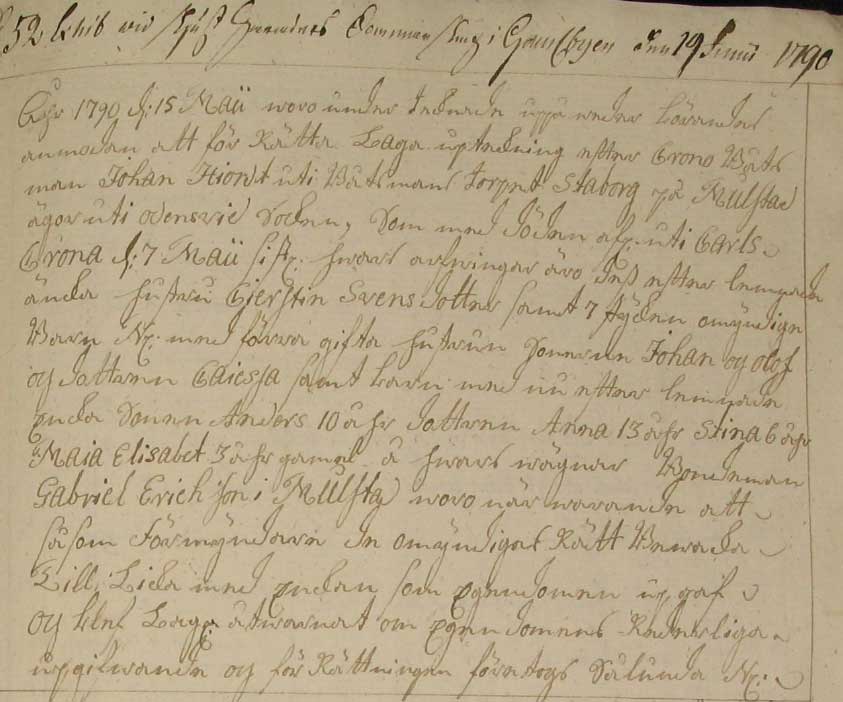 52 wid 1790
Åhr 1790 d: 15 Maii woro under tecknade uppå wederbörandes
anmodan att för Rätta Laga uptekning efter Crono Båts
man Johan Hiort uti Båtsmans torpet Staborg på Mulstad
ägor uti odensvie Socken, Som med döden af: uti Carls
Crona d: 7 Maii sist: hwars arfwingar äro dess efter lemnade
äncka hustru Cierstin Svens dotter samt 7 stycken omyndige
Barn Nl: med förra gifta hustrun Sonerne Johan og olof
og dottren Caiessa samt barn med nu efter lemnade
encka Sonen Anders 10 åhr dottren Anna 13 åhr Stina 6 åhr
Maia Elisabet 3 åhr gamel å hwars wägnar Bondeman
Gabriel Erichson i Mulstad woro när warande att
såsom Förmyndare de omyndigas Rätt Bewaka
Till: enckan som egendomen up gaf
og blef Laga åtwarnat om egendomens Redeliga
upgifwande og för Rättningen företogs Sålunda Nl: